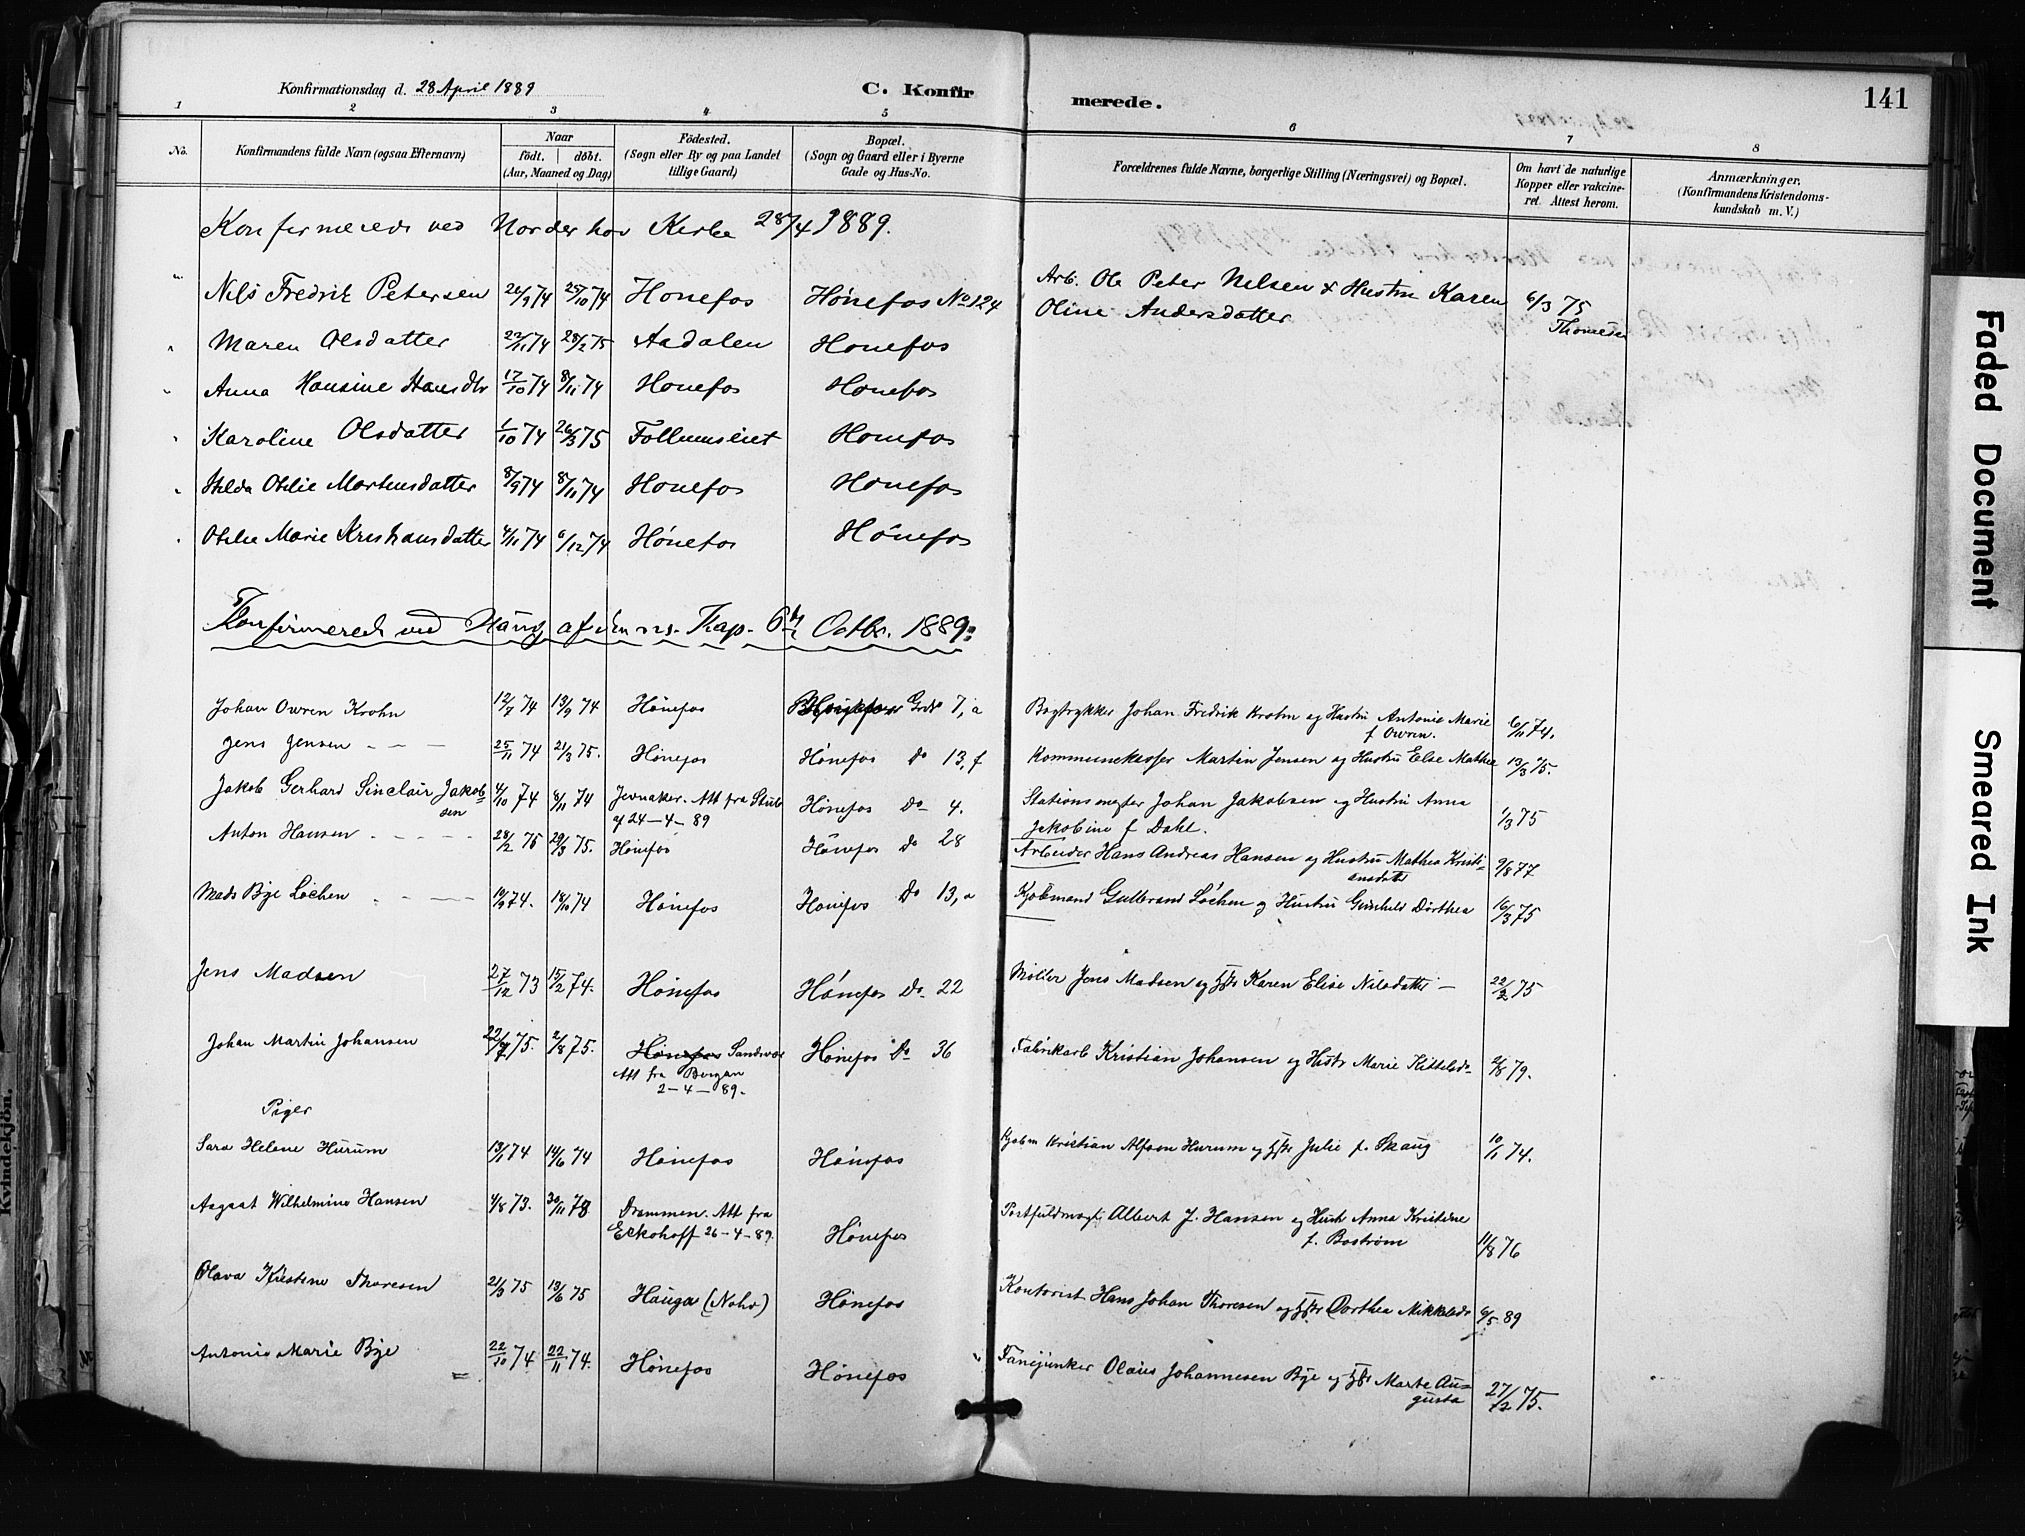 Konfirmationsdag d. 28 April 1889
C. Konfirmerede.
141
1 2 3 4 5 6 7 8
No.
Konfirmandens fulde Navn (ogsaa Efternavn)
Naar födt. döbt. (Aar, Maaned og Dag)
Födested. (Sogn eller By og paa Landet tillige Gaard)
Bopæl. (Sogn og Gaard eller i Byerne Gade og Hus-No.
Forældrenes fulde Navne, borgerlige Stilling (Næringsvei) og Bopæl.
Om havt de naturlige Kopper eller vakcineret. Attest herom.
Anmærkninger. (Konfirmandens Kristendomskundskab m. V.)
Konfirmerede ved Norderhov Kirke 28/4 1889.
Nils Fredrik Petersen 24/9 74 25/10 74 Honefos Hönefos No 124 Arb. Ole Peter Nelsen & Hustru Karen Oline Andersdatter 6/3 75 Thomesen
Maren Olsdatter 22/11 74 28/2 75 Aadalen Honefos
Anna Hansine Hansdtr 17/10 74 8/11 74 Honefos Honefos
Karoline Olsdatter 1/10 74 26/3 75 Follumseiet Honefos
Hilda Otilie Martinsdatter 8/9 74 8/11 74 Honefos Honefos
Otilie Marie Kristiansdatter 4/11 74 6/12 74 Hönefos Hönefos
Konfirmerede ved Haug af den res. Kap. 6te Octbr. 1889:
Johan Owren Krohn 12/7 74 13/9 74 Hönefos Grd 7, a Bogtrykker Johan Fredrik Krohn og Hustru Antonie Marie f. Owren. 6/11 74.
Jens Jensen - - - 25/11 74 21/3 75. Hönefos Hönefos Do 13, f Kommunekasser Martin Jensen og Hustru Else Mathea 13/3 75.
Jakob Gerhard Sinclair Jakobsen 4/10 74 8/11 74 Jevnaker. Att fra Stub af 24-4-89 Hönefos Do 4. Stationsmester Johan Jakobsen og Hustru Anna Jakobine f Dahl. 1/3 75
Anton Hansen - - - - 28/2 75 29/3 75. Hönefos Hönefos Do 28 Arbeider Hans Andreas Hansen og Hustru Mathea Kristiansdatter 9/8 77
Mads Bye Löchen - - - 19/9 74. 18/10 74 Hönefos Hönefos Do 13, a Kjøbmand Gulbrand Löchen og Hustru Gunhild Dorthea 16/3 75
Jens Madsen 27/12 73 15/2 74. Hönefos Hönefos Do 22 Möller Jens Madsen og Hstr Karen Elise Nilsdatter - 22/2 75
Johan Martin Johansen 22/7 75. 2/8 75. Sandsvær Att fra Bergan 2-4-89. Hönefos Do 36 Fabrikarb Kristian Johansen og Hustr Marie Kittelsd. 2/8 79.
Piger
Sara Helene Hurum 13/1 74 14/6 74 Hönefos Hönefos Kjøbm Kristian Alfsen Hurum og Hstr Julie f. Skaug 10/11 74.
Aagaat Wilhelmine Hansen 4/8 73. 30/11 78 Drammen. Att fra Eckohoff 26-4-89. Hönefos Postfuldmægt Albert J. Hansen og Hustr Anna Kristine f. Boström 11/8 76
Olava Kristine Thoresen 21/3 75 13/6 75 Hauga (Nohv) Hönefos Kontorist Hans Johan Thoresen og Hstr Dorthea Mikkelsdr 6/5 89
Antonie Marie Bye 22/10 74 22/11 74. Hönefos Hönefos Fanejunker Olaus Johannesen Bye og Hstr Marte Augusta 27/12 75.
Kvindekjön.
Faded Document
Smeared Ink